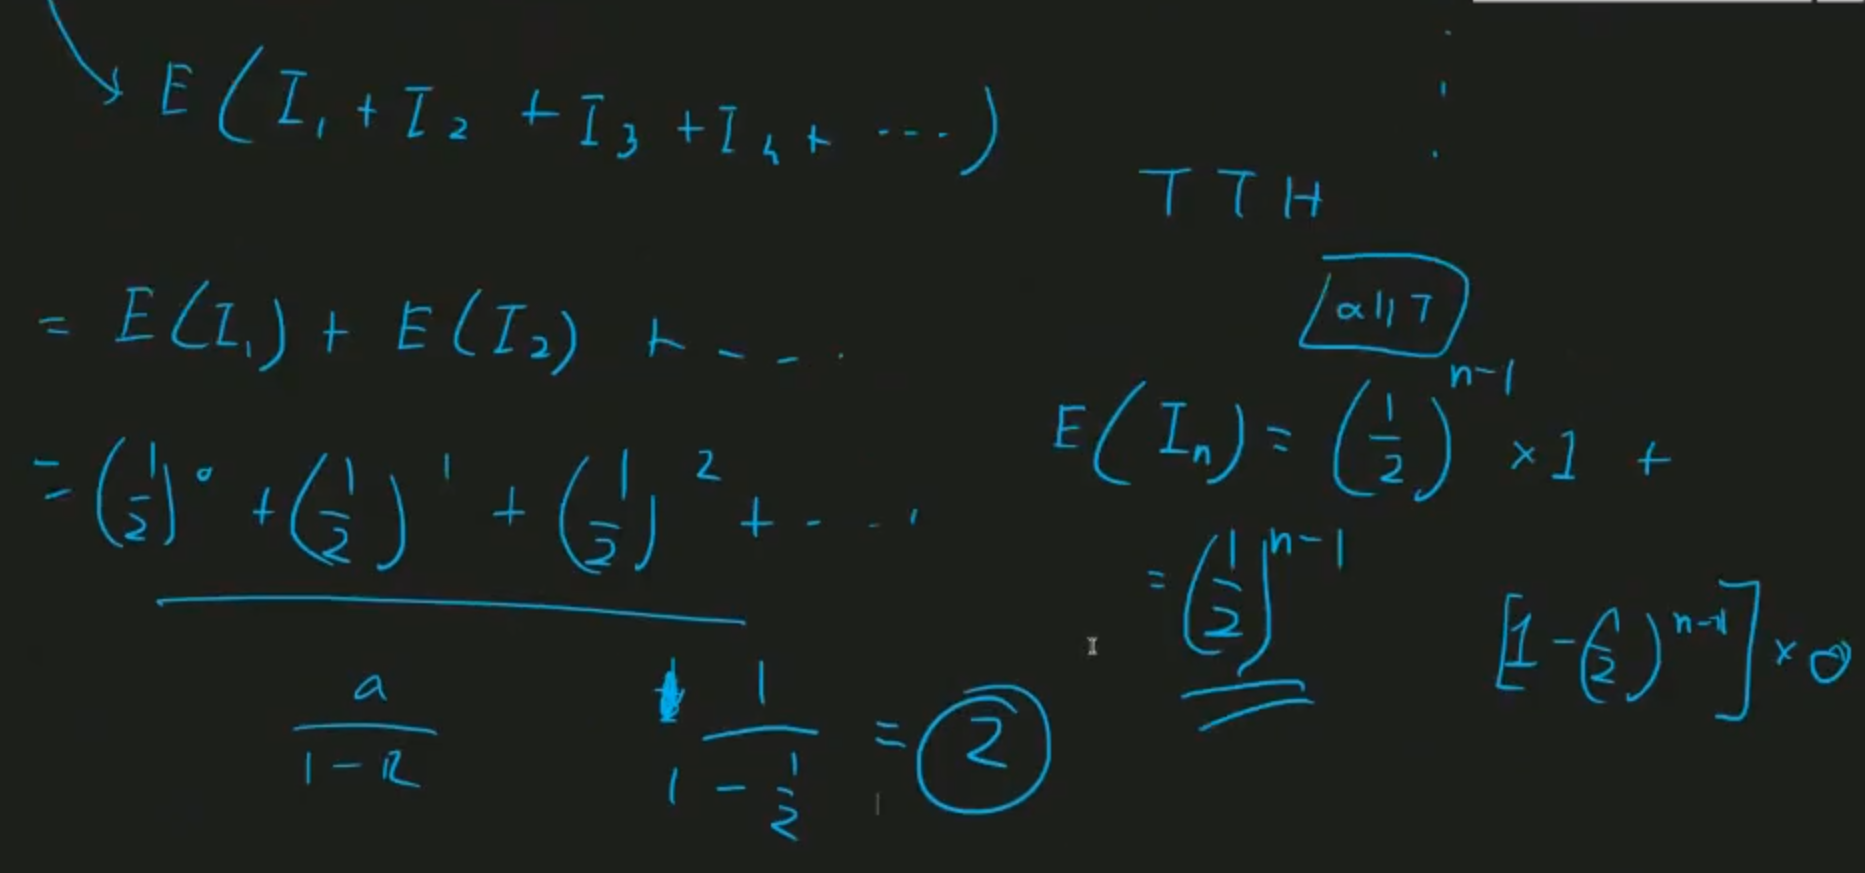 E(I₁ + I₂ + I₃ + I₄ + ...)
= E(I₁) + E(I₂) + ...
= (1/2)⁰ + (1/2)¹ + (1/2)² + ...
a/(1-R) 1/(1 - 1/2) = 2
TTH
all T
E(Iₙ) = (1/2)ⁿ⁻¹ × 1 +
[1 - (1/2)ⁿ⁻¹] × 0
= (1/2)ⁿ⁻¹